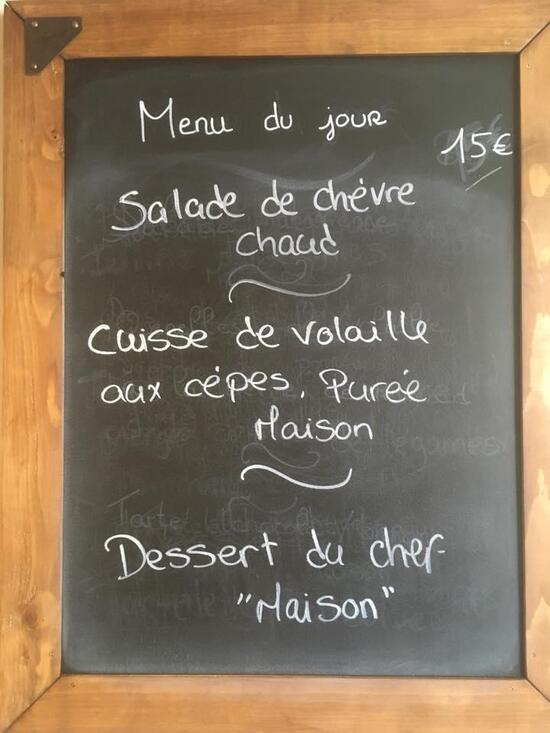 Menu du jour
15€
Salade de chèvre
chaud
Cuisse de volaille
aux cèpes, Purée
Maison
Dessert du chef
"Maison"